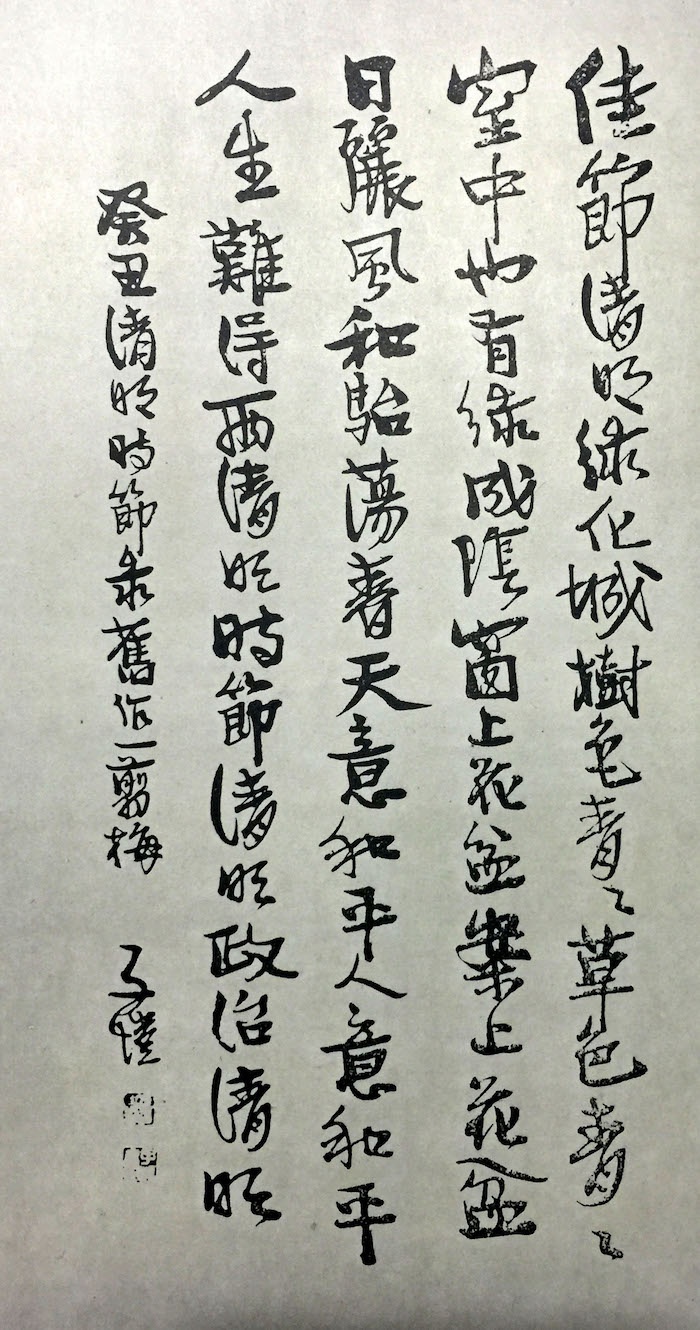 佳節清明綠化城樹色青々草色青々
室中也有綠成蔭窗上花盆案上花盆
日麗風和駘蕩春天意和平人意和平
人生難得兩清明時節清明政治清明
癸丑清明時節錄舊作一剪梅 子愷